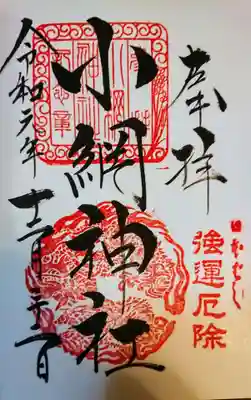 奉拝
強運厄除
小網神社
令和元年
十二月二十二日